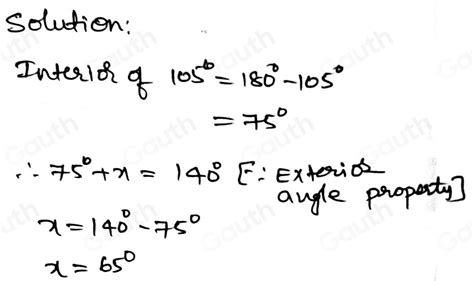 Solution:
Interior of 105° = 180° - 105°
= 75°
∴ 75° + x = 140° [∵ Exterior
angle property]
x = 140° - 75°
x = 65°